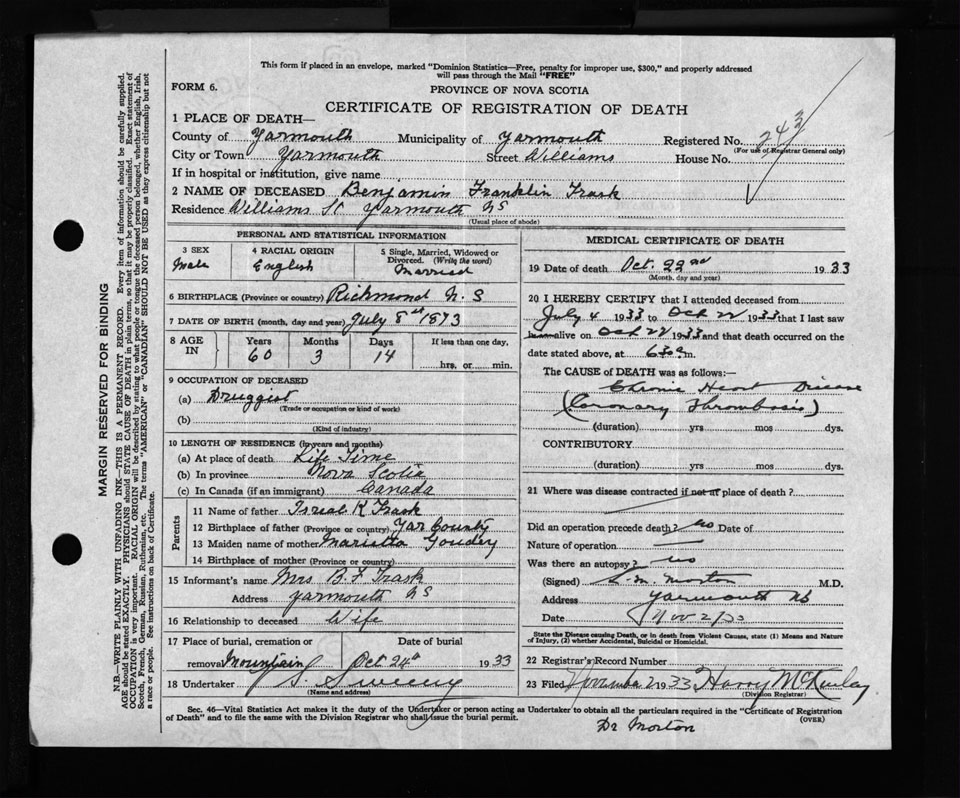 This form if placed in an envelope, marked "Dominion Statistics—Free, penalty for improper use, $300," and properly addressed
will pass through the Mail "FREE"
FORM 6.
PROVINCE OF NOVA SCOTIA
CERTIFICATE OF REGISTRATION OF DEATH
1 PLACE OF DEATH—
County of Yarmouth Municipality of Yarmouth Registered No. 243
(For use of Registrar General only)
City or Town Yarmouth Street Williams House No.
If in hospital or institution, give name
2 NAME OF DECEASED Benjamin Franklin Trask
Residence Williams St Yarmouth NS
(Usual place of abode)
PERSONAL AND STATISTICAL INFORMATION
3 SEX 4 RACIAL ORIGIN 5 Single, Married, Widowed or Divorced. (Write the word)
Male English Married
6 BIRTHPLACE (Province or country) Richmond N.S
7 DATE OF BIRTH (month, day and year) July 8st 1873
8 AGE IN Years Months Days If less than one day,
60 3 14 hrs. or min.
9 OCCUPATION OF DECEASED
(a) Druggist
(Trade or occupation or kind of work)
(b)
(Kind of industry)
10 LENGTH OF RESIDENCE (in years and months)
(a) At place of death Life Time
(b) In province Nova Scotia
(c) In Canada (if an immigrant) Canada
Parents
11 Name of father Isreal K Trask
12 Birthplace of father (Province or country) Yar County
13 Maiden name of mother Marietta Goudey
14 Birthplace of mother (Province or country)
15 Informant's name Mrs B.F Trask
Address Yarmouth NS
16 Relationship to deceased Wife
17 Place of burial, cremation or removal Mountain Date of burial Oct 24th 1933
18 Undertaker S. Sweeny
(Name and address)
MEDICAL CERTIFICATE OF DEATH
19 Date of death Oct. 22nd 1933
(Month, day and year)
20 I HEREBY CERTIFY that I attended deceased from
July 4 1933 to Oct 22 1933 that I last saw
him alive on Oct 22 1933 and that death occurred on the
date stated above, at m.
The CAUSE of DEATH was as follows:—
Chronic Heart Disease
(Coronary Thrombosis)
(duration) yrs mos dys.
CONTRIBUTORY
(duration) yrs mos dys.
21 Where was disease contracted if not at place of death?
Did an operation precede death? no Date of
Nature of operation —
Was there an autopsy? no
(Signed) Morton M.D.
Address Yarmouth NS
Date Nov 2/33
State the Disease causing Death, or in death from Violent Causes, state (1) Means and Nature
of Injury, (2) whether Accidental, Suicidal or Homicidal.
22 Registrar's Record Number
23 Filed November 2 1933 Harry McKinlay
(Division Registrar)
Sec. 46—Vital Statistics Act makes it the duty of the Undertaker or person acting as Undertaker to obtain all the particulars required in the "Certificate of Registration
of Death" and to file the same with the Division Registrar who shall issue the burial permit.
(OVER)
Dr Morton
MARGIN RESERVED FOR BINDING
N.B.—WRITE PLAINLY WITH UNFADING INK—THIS IS A PERMANENT RECORD. Every item of information should be carefully supplied.
AGE should be stated EXACTLY. PHYSICIANS should STATE CAUSE OF DEATH in plain terms, so that it may be properly classified. Exact statement of
OCCUPATION is very important. RACIAL ORIGIN will be described by stating to what people or tongue the deceased person belonged, whether English, Irish,
Scotch, French, German, Russian, Ruthenian, etc. The terms "AMERICAN" or "CANADIAN" SHOULD NOT BE USED as they express citizenship but not
a race or people. See instructions on back of Certificate.